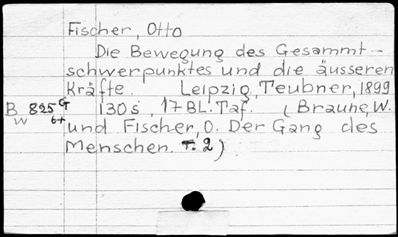 Fischer, Otto
Die Bewegung des Gesammt-
schwerpunktes und die äusseren
Kräfte. Leipzig, Teubner, 1899
B 825 G 130 s, 17 BL. Taf. (Braune, W.
W 6+ und Fischer, O. Der Gang des
Menschen. T. 2)